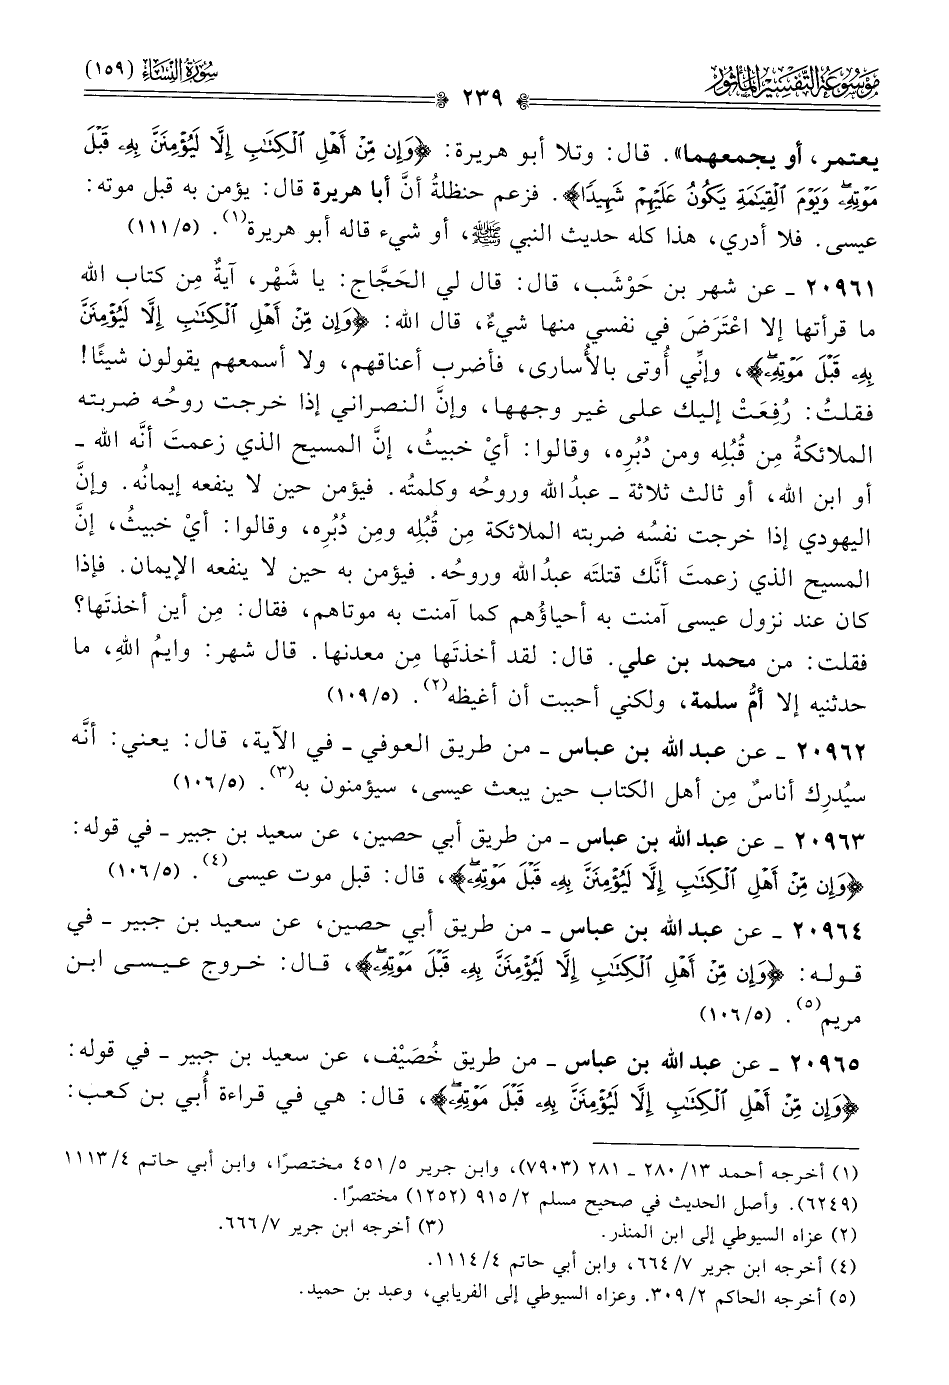 مَوْسُوعَةُ التَّفْسِيرِ المَأْثُور
سُورَةُ النِّسَاءِ (١٥٩)
٢٣٩
يعتمر، أو يجمعهما». قال: وتلا أبو هريرة: ﴿وَإِن مِّنْ أَهْلِ ٱلْكِتَٰبِ إِلَّا لَيُؤْمِنَنَّ بِهِۦ قَبْلَ
مَوْتِهِۦۖ وَيَوْمَ ٱلْقِيَٰمَةِ يَكُونُ عَلَيْهِمْ شَهِيدًا﴾. فزعم حنظلةُ أنَّ أبا هريرة قال: يؤمن به قبل موته:
عيسى. فلا أدري، هذا كله حديث النبي ﷺ، أو شيء قاله أبو هريرة(١). (١١١/٥)
٢٠٩٦١ ـ عن شهر بن حَوْشَب، قال: قال لي الحَجَّاج: يا شَهْر، آيةٌ مِن كتاب الله
ما قرأتها إلا اعْتَرَضَ في نفسي منها شيءٌ، قال الله: ﴿وَإِن مِّنْ أَهْلِ ٱلْكِتَٰبِ إِلَّا لَيُؤْمِنَنَّ
بِهِۦ قَبْلَ مَوْتِهِۦۖ﴾، وإنِّي أُوتى بالأُسارى، فأضرب أعناقهم، ولا أسمعهم يقولون شيئًا!
فقلتُ: رُفِعَتْ إليك على غير وجهها، وإنَّ النصراني إذا خرجت روحُه ضربته
الملائكةُ مِن قُبُلِه ومن دُبُرِه، وقالوا: أيْ خبيثُ، إنَّ المسيح الذي زعمتَ أنَّه الله ـ
أو ابن الله، أو ثالث ثلاثة ـ عبدُالله وروحُه وكلمتُه. فيؤمن حين لا ينفعه إيمانُه. وإنَّ
اليهودي إذا خرجت نفسُه ضربته الملائكة مِن قُبُلِه ومن دُبُرِه، وقالوا: أيْ خبيثُ، إنَّ
المسيح الذي زعمتَ أنَّك قتلتَه عبدُالله وروحُه. فيؤمن به حين لا ينفعه الإيمان. فإذا
كان عند نزول عيسى آمنت به أحياؤُهم كما آمنت به موتاهم، فقال: مِن أين أخذتَها؟
فقلت: من محمد بن علي. قال: لقد أخذتَها مِن معدنها. قال شهر: وايمُ اللهِ، ما
حدثنيه إلا أمُّ سلمة، ولكني أحببت أن أغيظه(٢). (١٠٩/٥)
٢٠٩٦٢ ـ عن عبد الله بن عباس ـ من طريق العوفي ـ في الآية، قال: يعني: أنَّه
سيُدرِك أناسٌ مِن أهل الكتاب حين يبعث عيسى، سيؤمنون به(٣). (١٠٦/٥)
٢٠٩٦٣ ـ عن عبد الله بن عباس ـ من طريق أبي حصين، عن سعيد بن جبير ـ في قوله:
﴿وَإِن مِّنْ أَهْلِ ٱلْكِتَٰبِ إِلَّا لَيُؤْمِنَنَّ بِهِۦ قَبْلَ مَوْتِهِۦۖ﴾، قال: قبل موت عيسى(٤). (١٠٦/٥)
٢٠٩٦٤ ـ عن عبد الله بن عباس ـ من طريق أبي حصين، عن سعيد بن جبير ـ في
قوله: ﴿وَإِن مِّنْ أَهْلِ ٱلْكِتَٰبِ إِلَّا لَيُؤْمِنَنَّ بِهِۦ قَبْلَ مَوْتِهِۦۖ﴾، قال: خروج عيسى ابن
مريم(٥). (١٠٦/٥)
٢٠٩٦٥ ـ عن عبد الله بن عباس ـ من طريق خُصَيْف، عن سعيد بن جبير ـ في قوله:
﴿وَإِن مِّنْ أَهْلِ ٱلْكِتَٰبِ إِلَّا لَيُؤْمِنَنَّ بِهِۦ قَبْلَ مَوْتِهِۦۖ﴾، قال: هي في قراءة أُبي بن كعب:
(١) أخرجه أحمد ٢٨٠/١٣ ـ ٢٨١ (٧٩٠٣)، وابن جرير ٤٥١/٥ مختصرًا، وابن أبي حاتم ١١١٣/٤
(٦٢٤٩). وأصل الحديث في صحيح مسلم ٩١٥/٢ (١٢٥٢) مختصرًا.
(٢) عزاه السيوطي إلى ابن المنذر. (٣) أخرجه ابن جرير ٦٦٦/٧.
(٤) أخرجه ابن جرير ٦٦٤/٧، وابن أبي حاتم ١١١٤/٤.
(٥) أخرجه الحاكم ٣٠٩/٢. وعزاه السيوطي إلى الفريابي، وعبد بن حميد.